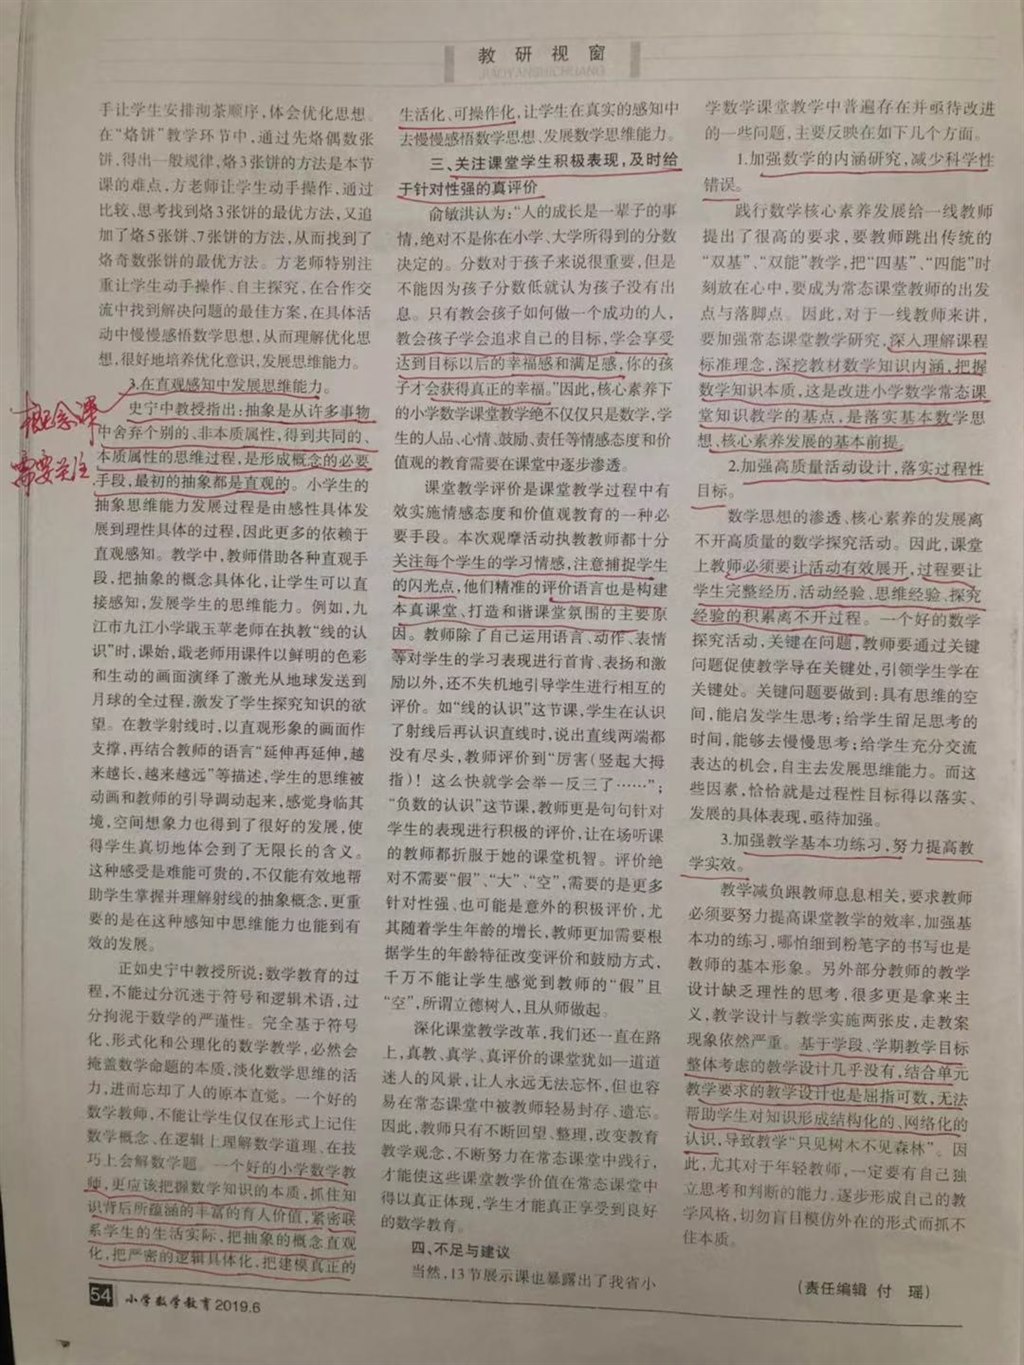 教研视窗
手让学生安排沏茶顺序,体会优化思想。
在“烙饼”教学环节中,通过先烙偶数张
饼,得出一般规律,烙3张饼的方法是本节
课的难点,方老师让学生动手操作,通过
比较、思考找到烙3张饼的最优方法,又追
加了烙5张饼、7张饼的方法,从而找到了
烙奇数张饼的最优方法。方老师特别注
重让学生动手操作、自主探究,在合作交
流中找到解决问题的最佳方案,在具体活
动中慢慢感悟数学思想,从而理解优化思
想,很好地培养优化意识,发展思维能力。
3.在直观感知中发展思维能力。
史宁中教授指出:抽象是从许多事物
中舍弃个别的、非本质属性,得到共同的、
本质属性的思维过程,是形成概念的必要
手段,最初的抽象都是直观的。小学生的
抽象思维能力发展过程是由感性具体发
展到理性具体的过程,因此更多的依赖于
直观感知。教学中,教师借助各种直观手
段,把抽象的概念具体化,让学生可以直
接感知,发展学生的思维能力。例如,九
江市九江小学戢玉苹老师在执教“线的认
识”时,课始,戢老师用课件以鲜明的色彩
和生动的画面演绎了激光从地球发送到
月球的全过程,激发了学生探究知识的欲
望。在教学射线时,以直观形象的画面作
支撑,再结合教师的语言“延伸再延伸,越
来越长,越来越远”等描述,学生的思维被
动画和教师的引导调动起来,感觉身临其
境,空间想象力也得到了很好的发展,使
得学生真切地体会到了无限长的含义。
这种感受是难能可贵的,不仅能有效地帮
助学生掌握并理解射线的抽象概念,更重
要的是在这种感知中思维能力也能到有
效的发展。
正如史宁中教授所说:数学教育的过
程,不能过分沉迷于符号和逻辑术语,过
分拘泥于数学的严谨性。完全基于符号
化、形式化和公理化的数学教学,必然会
掩盖数学命题的本质,淡化数学思维的活
力,进而忘却了人的原本直觉。一个好的
数学教师,不能让学生仅仅在形式上记住
数学概念、在逻辑上理解数学道理、在技
巧上会解数学题。一个好的小学数学教
师,更应该把握数学知识的本质,抓住知
识背后所蕴涵的丰富的育人价值,紧密联
系学生的生活实际,把抽象的概念直观
化,把严密的逻辑具体化,把建模真正的
概念课
需要关注
生活化、可操作化,让学生在真实的感知中
去慢慢感悟数学思想、发展数学思维能力。
三、关注课堂学生积极表现,及时给
于针对性强的真评价
俞敏洪认为:“人的成长是一辈子的事
情,绝对不是你在小学、大学所得到的分数
决定的。分数对于孩子来说很重要,但是
不能因为孩子分数低就认为孩子没有出
息。只有教会孩子如何做一个成功的人,
教会孩子学会追求自己的目标,学会享受
达到目标以后的幸福感和满足感,你的孩
子才会获得真正的幸福。”因此,核心素养下
的小学数学课堂教学绝不仅仅只是数学,学
生的人品、心情、鼓励、责任等情感态度和价
值观的教育需要在课堂中逐步渗透。
课堂教学评价是课堂教学过程中有
效实施情感态度和价值观教育的一种必
要手段。本次观摩活动执教教师都十分
关注每个学生的学习情感,注意捕捉学生
的闪光点,他们精准的评价语言也是构建
本真课堂、打造和谐课堂氛围的主要原
因。教师除了自己运用语言、动作、表情
等对学生的学习表现进行首肯、表扬和激
励以外,还不失机地引导学生进行相互的
评价。如“线的认识”这节课,学生在认识
了射线后再认识直线时,说出直线两端都
没有尽头,教师评价到“厉害(竖起大拇
指)!这么快就学会举一反三了……”;
“负数的认识”这节课,教师更是句句针对
学生的表现进行积极的评价,让在场听课
的教师都折服于她的课堂机智。评价绝
对不需要“假”、“大”、“空”,需要的是更多
针对性强、也可能是意外的积极评价,尤
其随着学生年龄的增长,教师更加需要根
据学生的年龄特征改变评价和鼓励方式,
千万不能让学生感觉到教师的“假”且
“空”,所谓立德树人,且从师做起。
深化课堂教学改革,我们还一直在路
上,真教、真学、真评价的课堂犹如一道道
迷人的风景,让人永远无法忘怀,但也容
易在常态课堂中被教师轻易封存、遗忘。
因此,教师只有不断回望、整理,改变教育
教学观念,不断努力在常态课堂中践行,
才能使这些课堂教学价值在常态课堂中
得以真正体现,学生才能真正享受到良好
的数学教育。
四、不足与建议
当然,13节展示课也暴露出了我省小
学数学课堂教学中普遍存在并亟待改进
的一些问题,主要反映在如下几个方面。
1.加强数学的内涵研究,减少科学性
错误。
践行数学核心素养发展给一线教师
提出了很高的要求,要教师跳出传统的
“双基”、“双能”教学,把“四基”、“四能”时
刻放在心中,要成为常态课堂教师的出发
点与落脚点。因此,对于一线教师来讲,
要加强常态课堂教学研究,深入理解课程
标准理念,深挖教材数学知识内涵,把握
数学知识本质,这是改进小学数学常态课
堂知识教学的基点,是落实基本数学思
想、核心素养发展的基本前提。
2.加强高质量活动设计,落实过程性
目标。
数学思想的渗透、核心素养的发展离
不开高质量的数学探究活动。因此,课堂
上教师必须要让活动有效展开,过程要让
学生完整经历,活动经验、思维经验、探究
经验的积累离不开过程。一个好的数学
探究活动,关键在问题,教师要通过关键
问题促使教学导在关键处,引领学生学在
关键处。关键问题要做到:具有思维的空
间,能启发学生思考;给学生留足思考的
时间,能够去慢慢思考;给学生充分交流
表达的机会,自主去发展思维能力。而这
些因素,恰恰就是过程性目标得以落实、
发展的具体表现,亟待加强。
3.加强教学基本功练习,努力提高教
学实效。
教学减负跟教师息息相关,要求教师
必须要努力提高课堂教学的效率,加强基
本功的练习,哪怕细到粉笔字的书写也是
教师的基本形象。另外部分教师的教学
设计缺乏理性的思考,很多更是拿来主
义,教学设计与教学实施两张皮,走教案
现象依然严重。基于学段、学期教学目标
整体考虑的教学设计几乎没有,结合单元
教学要求的教学设计也是屈指可数,无法
帮助学生对知识形成结构化的、网络化的
认识,导致教学“只见树木不见森林”。因
此,尤其对于年轻教师,一定要有自己独
立思考和判断的能力,逐步形成自己的教
学风格,切勿盲目模仿外在的形式而抓不
住本质。
(责任编辑 付 瑶)
54 小学数学教育 2019.6